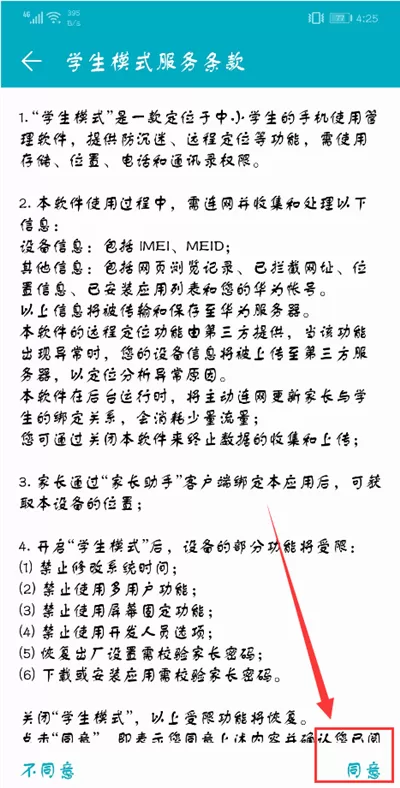 4G 395 B/s 4:25
学生模式服务条款
1.“学生模式”是一款定位于中小学生的手机使用管
理软件，提供防沉迷、远程定位等功能，需使用
存储、位置、电话和通讯录权限。
2. 本软件使用过程中，需连网并收集和处理以下
信息：
设备信息：包括 IMEI、MEID；
其他信息：包括网页浏览记录、已拦截网址、位
置信息、已安装应用列表和您的华为帐号。
以上信息将被传输和保存至华为服务器。
本软件的远程定位功能由第三方提供，当该功能
出现异常时，您的设备信息将被上传至第三方服
务器，以定位分析异常原因。
本软件在后台运行时，将主动连网更新家长与学
生的绑定关系，会消耗少量流量；
您可通过关闭本软件来终止数据的收集和上传；
3. 家长通过“家长助手”客户端绑定本应用后，可获
取本设备的位置；
4. 开启“学生模式”后，设备的部分功能将受限：
(1) 禁止修改系统时间；
(2) 禁止使用多用户功能；
(3) 禁止使用屏幕固定功能；
(4) 禁止使用开发人员选项；
(5) 恢复出厂设置需校验家长密码；
(6) 下载或安装应用需校验家长密码。
关闭“学生模式”，以上受限功能将恢复。
点击“同意”，即表示您同意上述内容并确认您已阅
不同意 同意